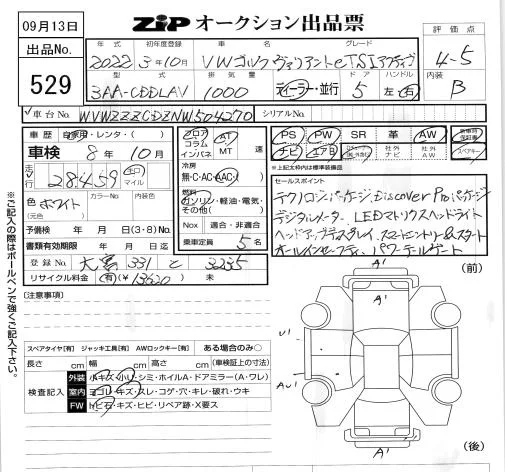 09月13日
ZIP オークション出品票
出品No. 529
年式 初年度登録 車名 グレード
2022 3年10月 VWゴルフ ヴァリアントeTSIアクティブ
型式 排気量 ドア ハンドル
3AA-CDDLAV 1000 ディーラー・並行 5 左・右
評価点 4-5
内装 B
車台No. WVWZZZCDZNW504270 シリアルNo.
車歴 自家用・レンタ・( )
車検 8年10月
走行 28,459 km マイル
色 ホワイト (元色) カラーNo. 内装色
予備検 年 月 日(3・8)No.
書類有効期限 年 月 日迄
登録No. 331 と 3235
リサイクル料金 有(¥13620) 未
フロア コラム インパネ AT MT 速
冷房 無・C・AC・AAC
燃料 ガソリン・軽油・電気・その他( )
Nox 適合・非適合
乗車定員 5 名
PS PW SR 革 AW
ナビ エアB 社外ナビ 社外AW
新車時保証書
スペアキー
※上記太枠内は標準装備品
セールスポイント
テクノロジーパッケージ Discover Proパッケージ
デジタルメーター LEDマトリクスヘッドライト
ヘッドアップディスプレイ スマートエントリー&スタート
オールインセーフティ パワーテールゲート
※ご記入の際はボールペンで強くご記入下さい。
(注意事項)
スペアタイヤ[有] ジャッキ工具[有] AWロックキー[有] ある場合のみ〇
長さ cm 幅 cm 高さ cm (車検証上の寸法)
検査記入
外装 小キズ・小U・シミ・ホイルA・ドアミラー(A・ワレ)
室内 ヨゴレ・キズ・スレ・コゲ・穴・キレ・破れ・ウキ
FW トビ石・キズ・ヒビ・リペア跡・X要ス
(前)
A'
A'
U'
AU'
A'
(後)